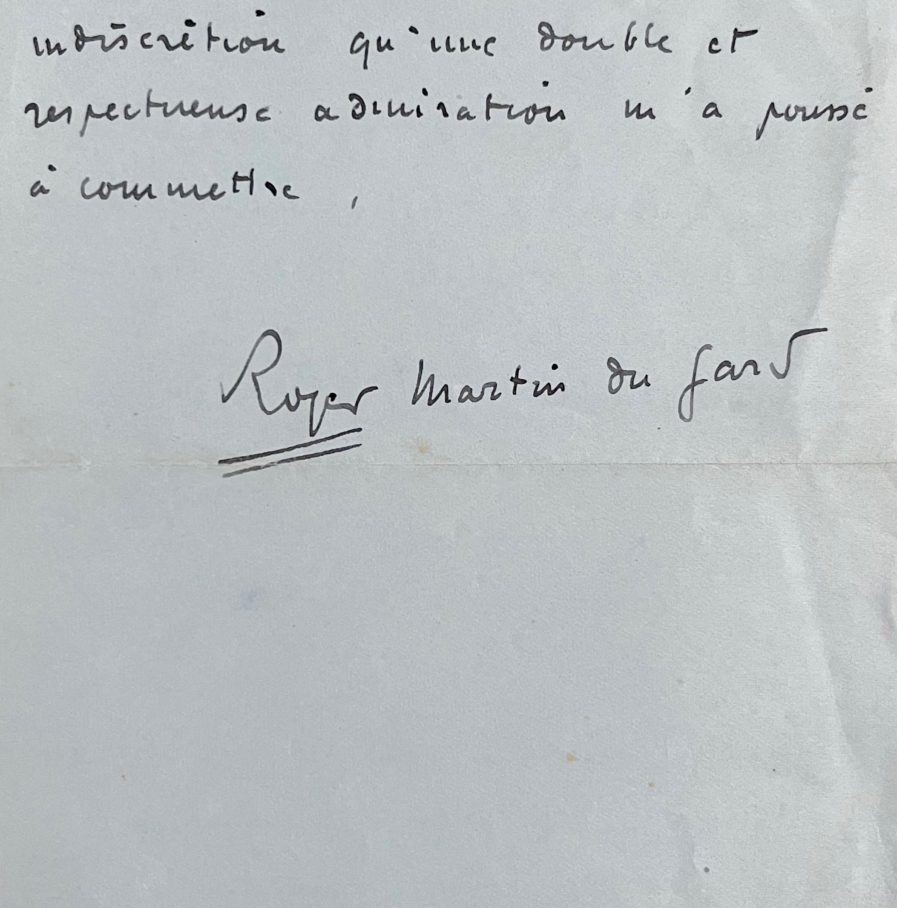 indiscrétion qu'une double et
respectueuse admiration m'a poussé
à commettre,
Roger Martin du Gard